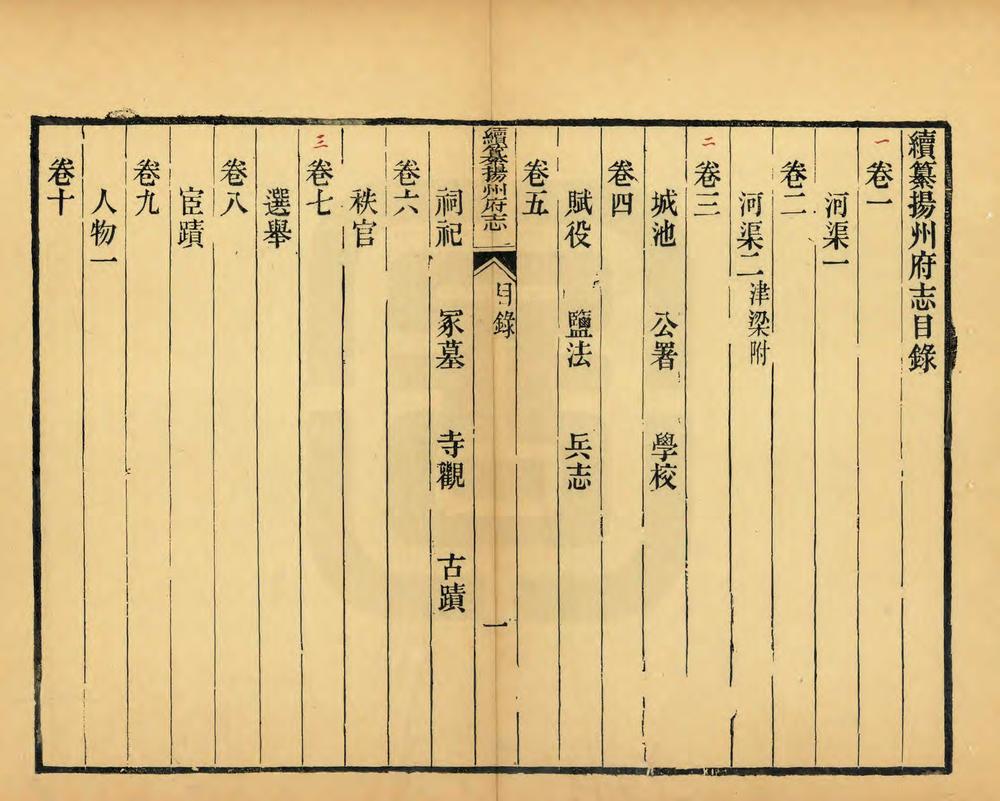 續纂揚州府志目錄
一
卷一
河渠一
卷二
河渠二津梁附
二
卷三
城池 公署 學校
卷四
賦役 鹽法 兵志
卷五
續纂揚州府志 目錄 一
祠祀 冢墓 寺觀 古蹟
卷六
秩官
三
卷七
選舉
卷八
宦蹟
卷九
人物一
卷十